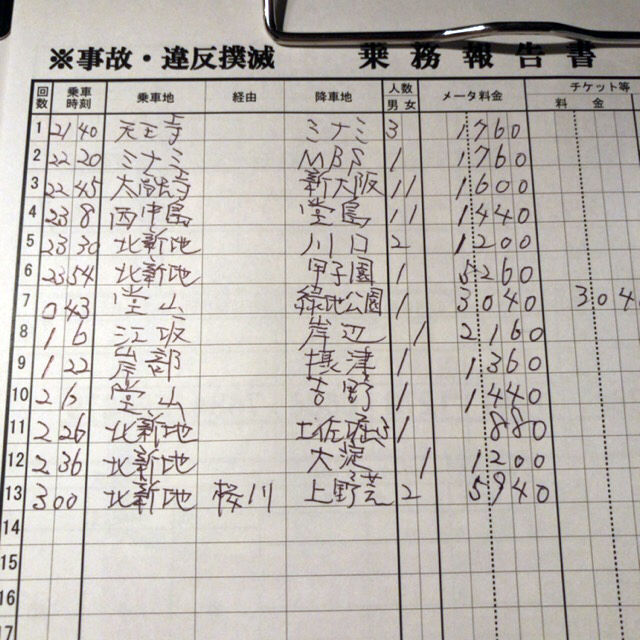 ※事故・違反撲滅 乗務報告書
回数 乗車時刻 乗車地 経由 降車地 人数 男 女 メータ料金 チケット等 料 金
1 21 40 天王寺 ミナミ 3 1760
2 22 20 ミナミ MBS 1 1760
3 22 45 新大阪 1 1 1600
4 23 8 西中島 堂島 1 1 1440
5 23 30 北新地 川口 2 1200
6 23 54 北新地 甲子園 1 5260
7 0 43 堂山 緑地公園 1 3040 304
8 1 6 江坂 岸辺 1 2160
9 1 22 岸部 摂津 1 1360
10 2 堂山 吉野 1 1440
11 2 26 北新地 土佐堀3 1 880
12 2 36 北新地 大淀 1 1200
13 3 00 北新地 桜川 上野芝 2 5940
14
15
16
17